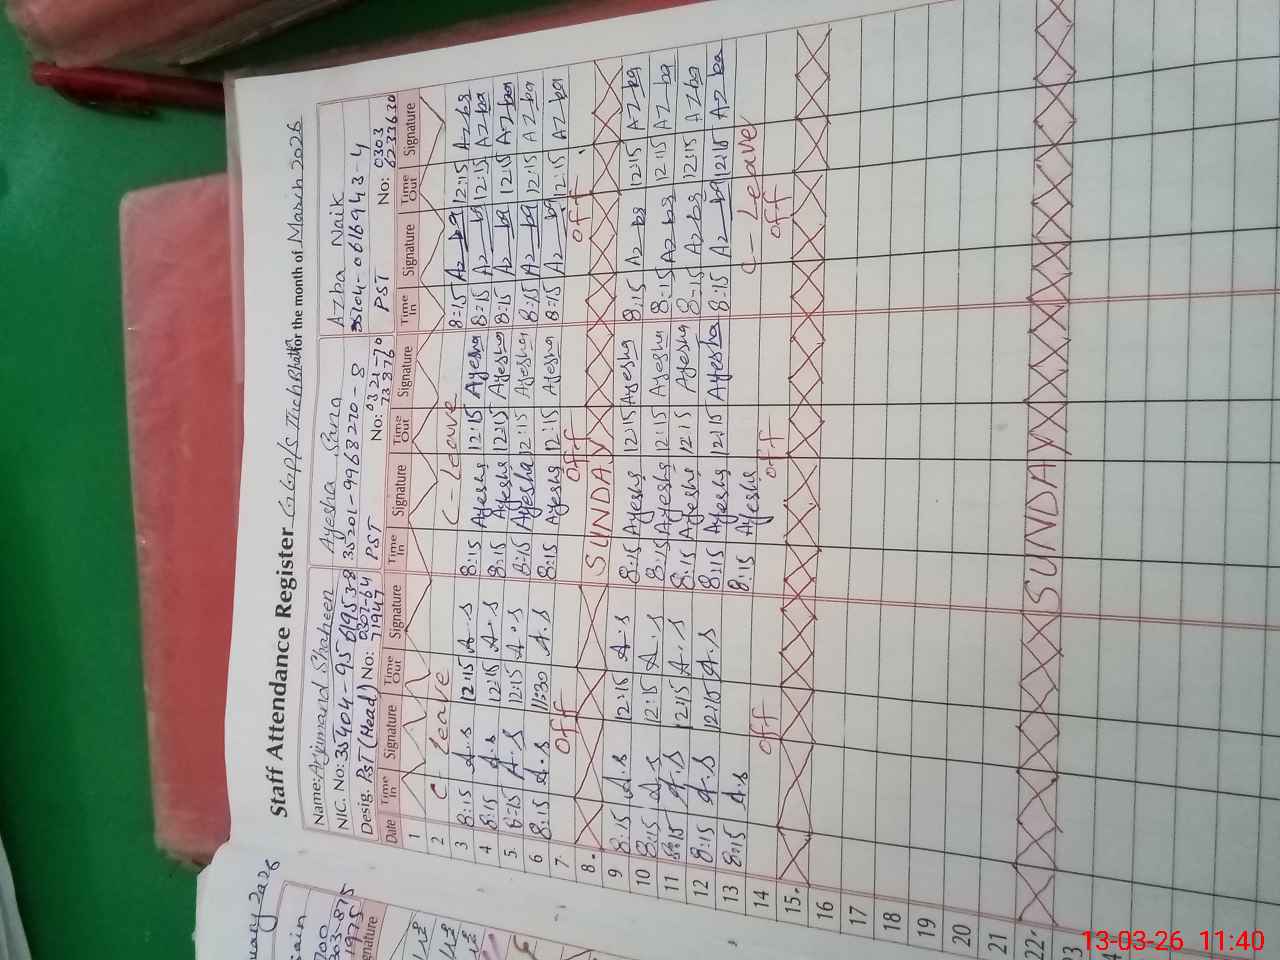 Staff Attendance Register G.G.P/S Theh Bhatti for the month of March 2026
Name: Arjumand Shaheen
NIC. No: 35404-9561953-8
Desig. PST (Head) No: 0307-64 71947
Ayesha Sana
35201-9968270-8
PST No: 0321-70 73876
Azba Naik
35204-0616943-4
PST No: 0303 6233630
Date Time In Signature Time Out Signature Time In Signature Time Out Signature Time In Signature Time Out Signature
1
2 C- leave C- leave 8:15 Azba 12:15 Azba
3 8:15 A.S 12:15 A.S 8:15 Ayesha 12:15 Ayesha 8:15 Azba 12:15 Azba
4 8:15 A.S 12:15 A.S 8:15 Ayesha 12:15 Ayesha 8:15 Azba 12:15 Azba
5 8:15 A.S 12:15 A.S 8:15 Ayesha 12:15 Ayesha 8:15 Azba 12:15 Azba
6 8:15 A.S 11:30 A.S 8:15 Ayesha 12:15 Ayesha 8:15 Azba 12:15 Azba
7 off off off
8 SUNDAY
9 8:15 A.S 12:15 A.S 8:15 Ayesha 12:15 Ayesha 8:15 Azba 12:15 Azba
10 8:15 A.S 12:15 A.S 8:15 Ayesha 12:15 Ayesha 8:15 Azba 12:15 Azba
11 8:15 A.S 12:15 A.S 8:15 Ayesha 12:15 Ayesha 8:15 Azba 12:15 Azba
12 8:15 A.S 12:15 A.S 8:15 Ayesha 12:15 Ayesha 8:15 Azba 12:15 Azba
13 8:15 A.S 8:15 Ayesha C- Leave
14 off off off
15
16
17
18
19
20
21
22 SUNDAY
23
13-03-26 11:40